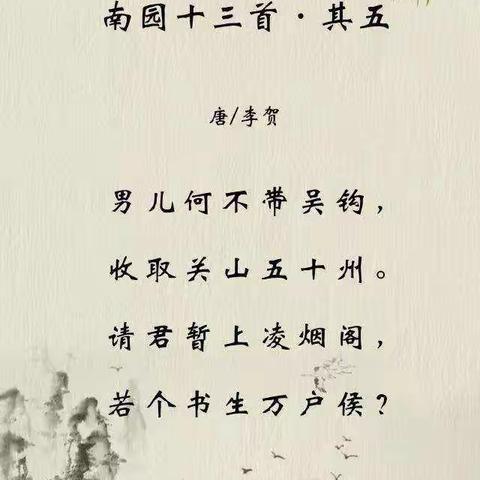 南园十三首·其五
唐/李贺
男儿何不带吴钩，
收取关山五十州。
请君暂上凌烟阁，
若个书生万户侯？